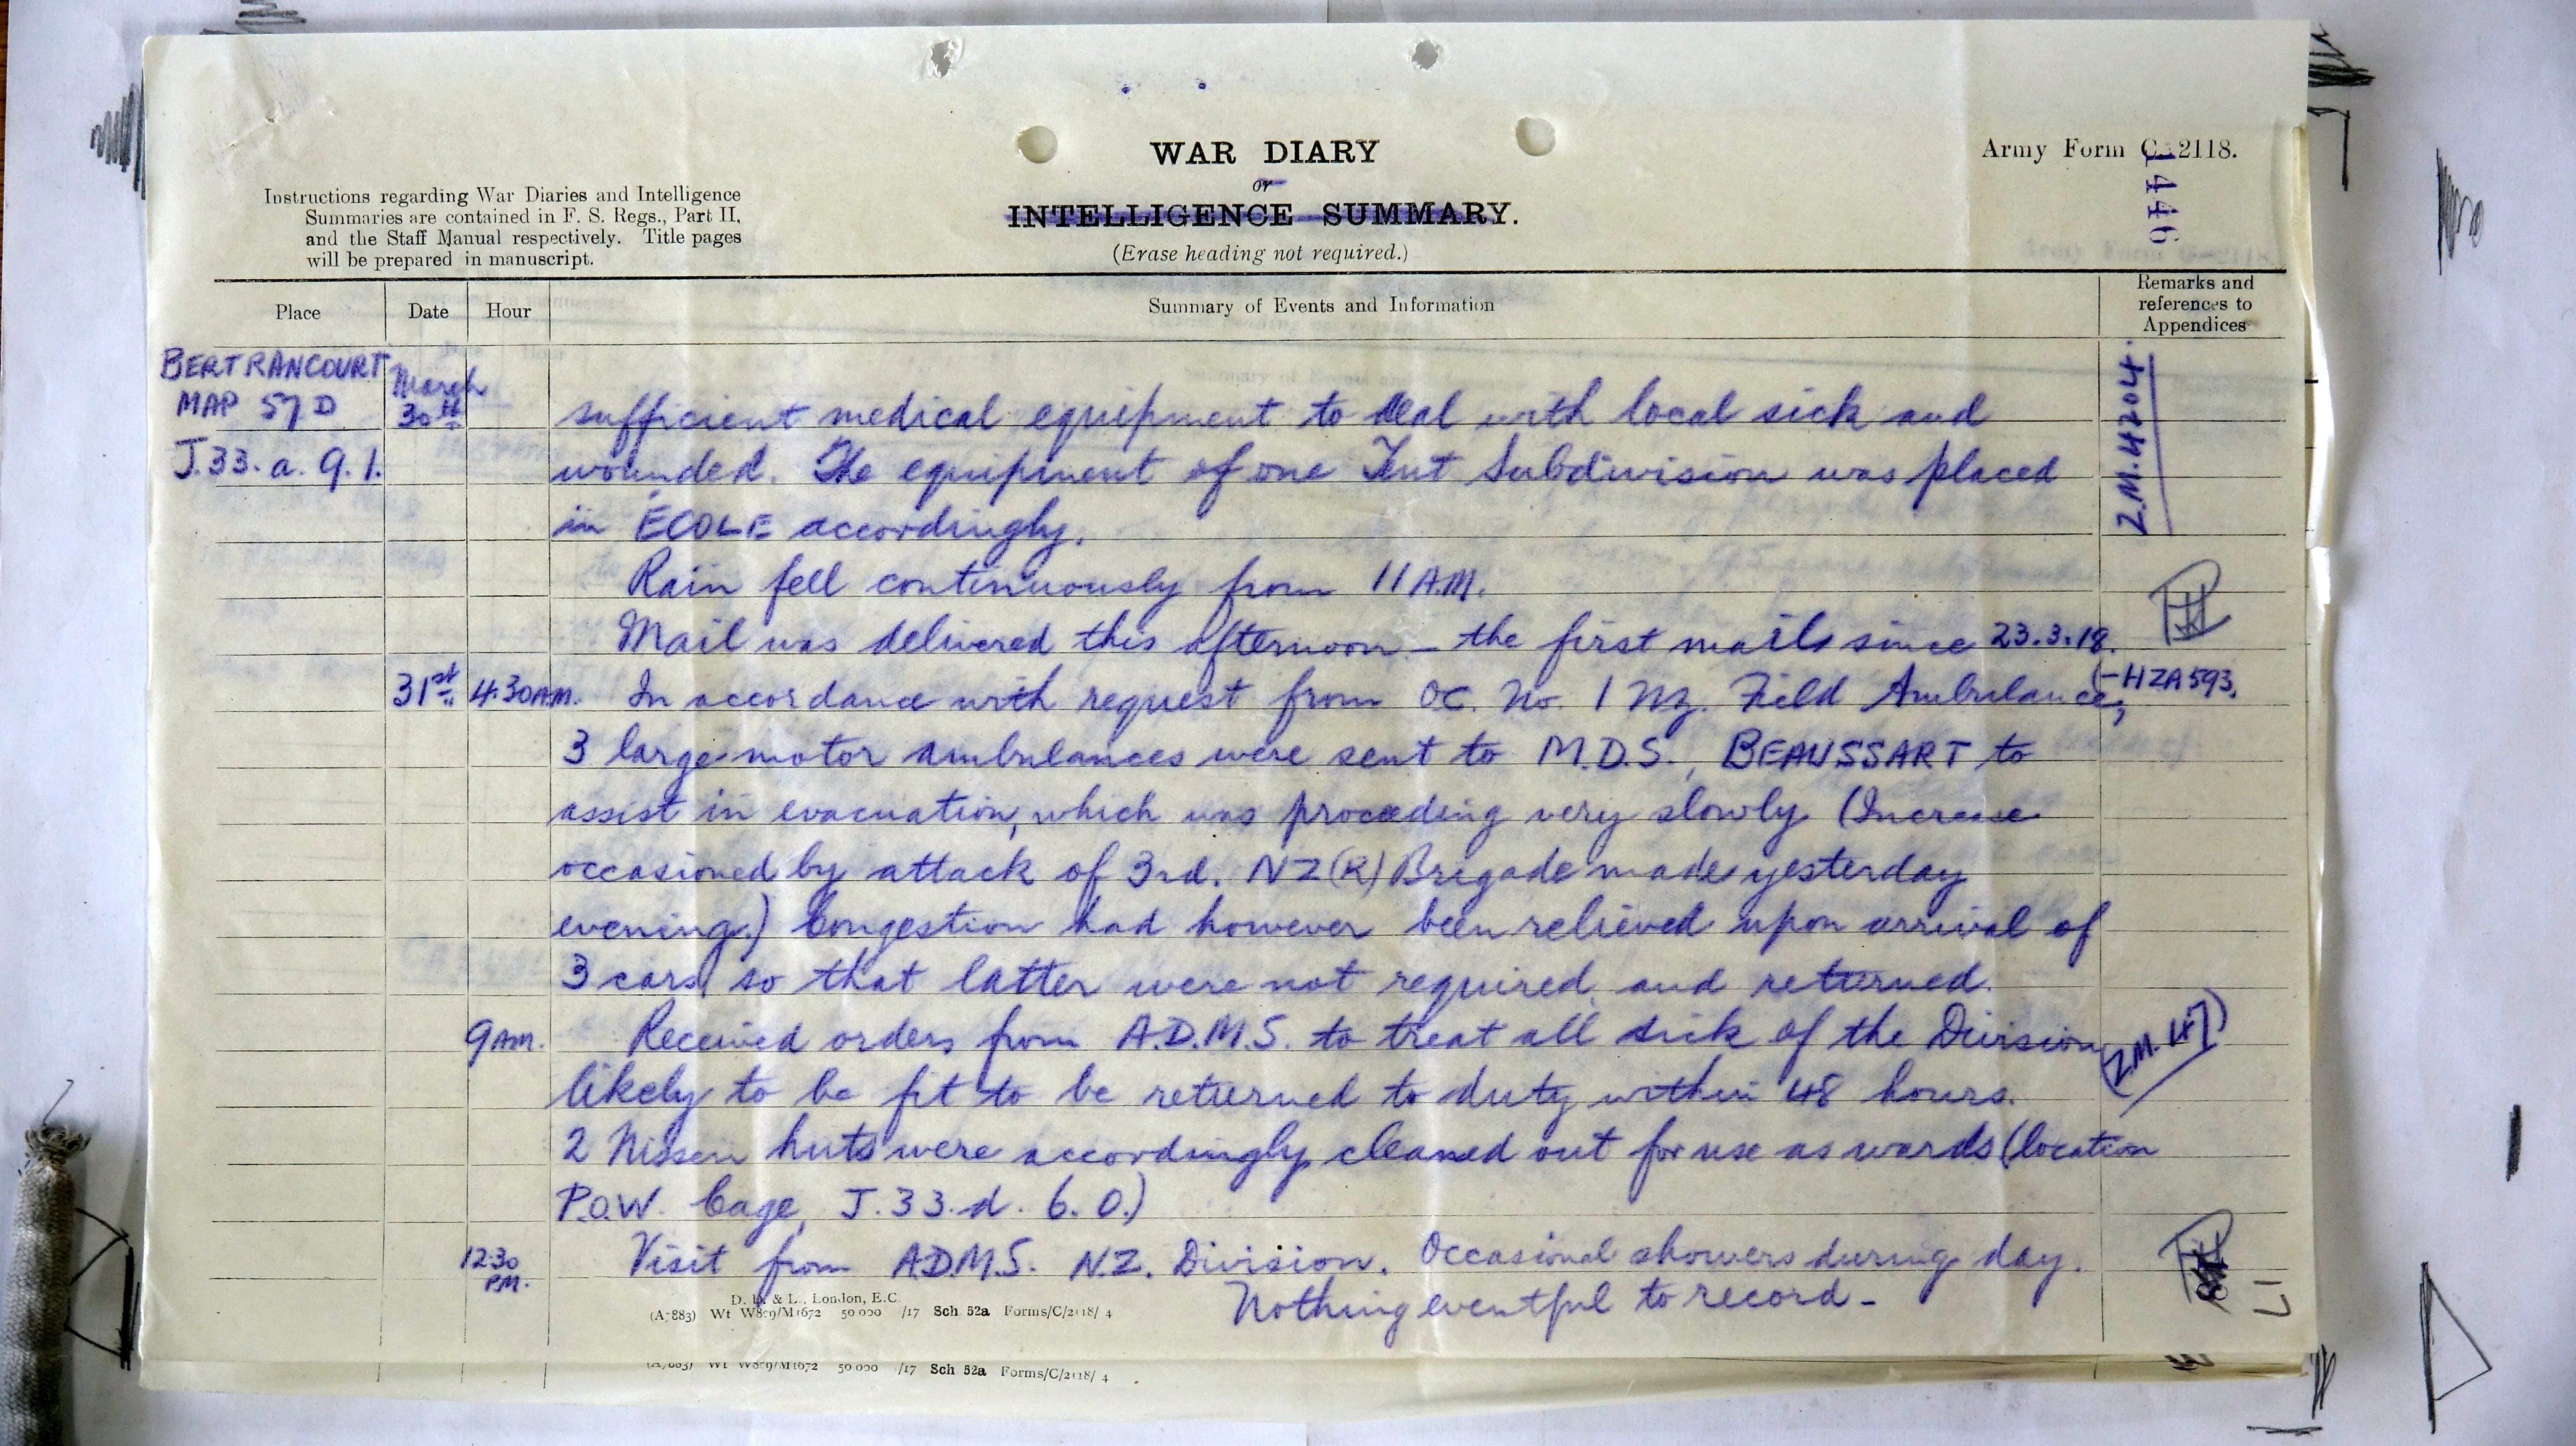 WAR DIARY
or
INTELLIGENCE SUMMARY.
(Erase heading not required.)
Army Form C. 2118.
1446
Instructions regarding War Diaries and Intelligence
Summaries are contained in F. S. Regs., Part II,
and the Staff Manual respectively. Title pages
will be prepared in manuscript.
Place Date Hour Summary of Events and Information Remarks and
references to
Appendices
BERTRANCOURT
MAP 57D
J.33.a.9.1.
March
30th
sufficient medical equipment to deal with local sick and
wounded. The equipment of one Tent Subdivision was placed
in ÉCOLE accordingly.
Z.M.4204.
Rain fell continuously from 11 A.M.
Mail was delivered this afternoon - the first mail since 23.3.18.
31st 4.30 A.M. In accordance with request from OC. No. 1 NZ. Field Ambulance, (-HZA593,
3 large motor ambulances were sent to M.D.S., BEAUSSART to
assist in evacuation, which was proceeding very slowly (Increase
occasioned by attack of 3rd. NZ(R) Brigade made yesterday
evening.) Congestion had however been relieved upon arrival of
3 cars so that latter were not required and returned.
9 AM. Received orders from A.D.M.S. to treat all sick of the Division (Z.M.47)
likely to be fit to be returned to duty within 48 hours.
2 Nissen huts were accordingly cleaned out for use as wards (location
P.O.W. Cage, J.33.d.6.0.)
12.30 PM. Visit from A.D.M.S. N.Z. Division. Occasional showers during day.
Nothing eventful to record -
17
D. D. & L., London, E.C.
(A7883) Wt W809/M1672 50 000 /17 Sch 52a Forms/C/2118/ 4
(A7883) Wt W809/M1672 50 000 /17 Sch 52a Forms/C/2118/ 4